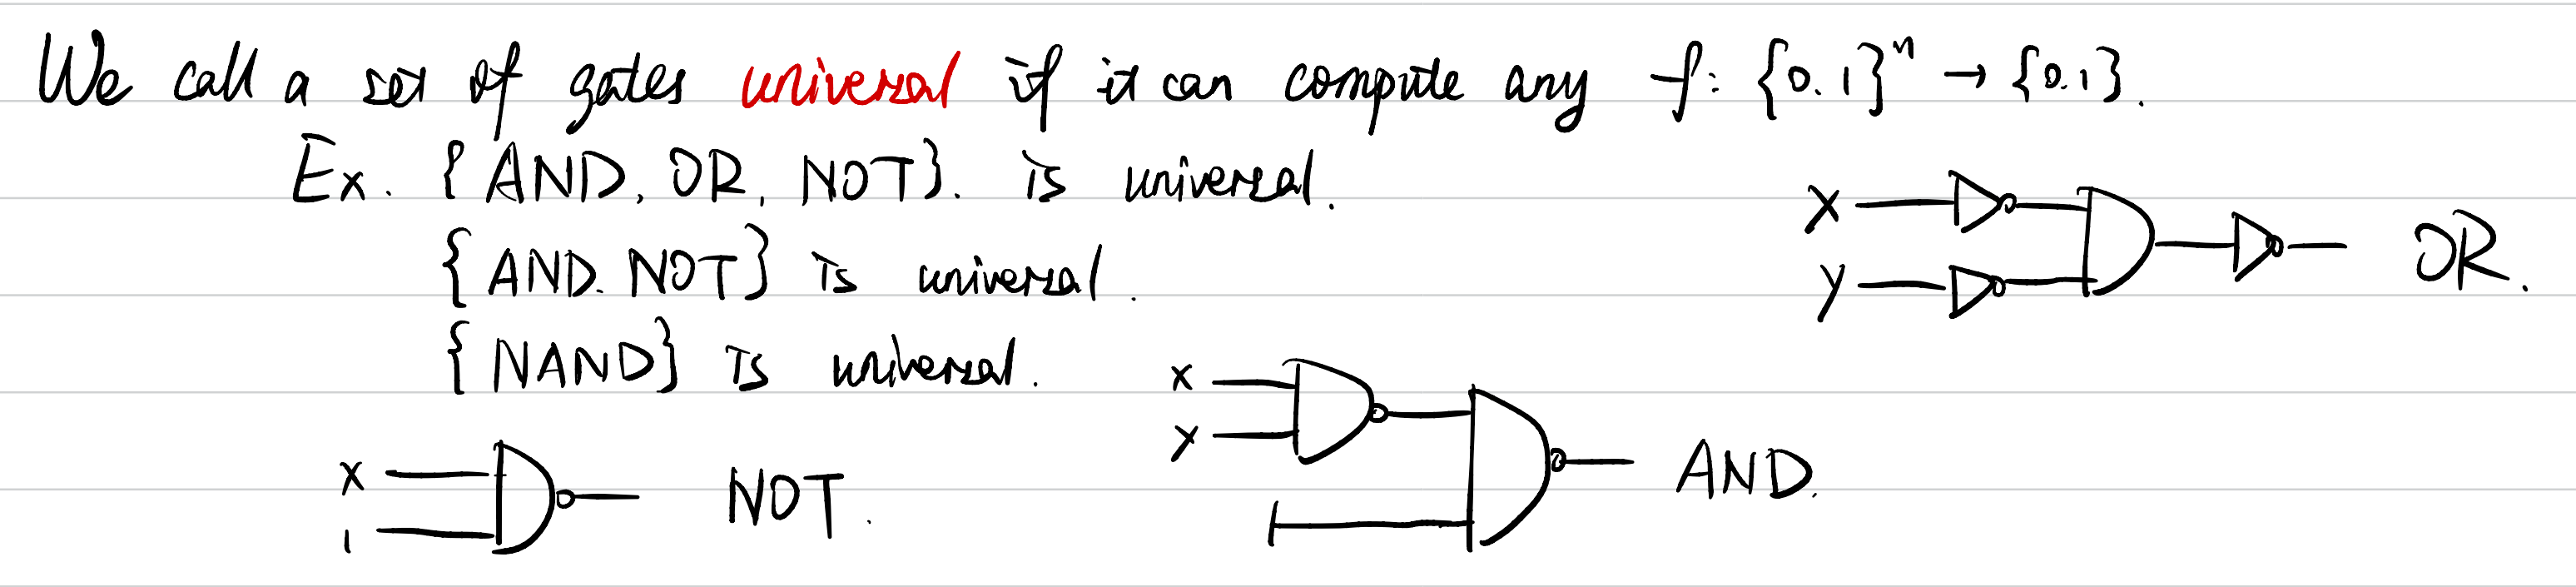 We call a set of gates universal if it can compute any f: {0.1}ⁿ → {0.1}.
Ex. {AND, OR, NOT}. is universal.
{AND. NOT} is universal.
{NAND} is universal.
x
y
OR.
x
1
NOT.
x
y
1
AND.